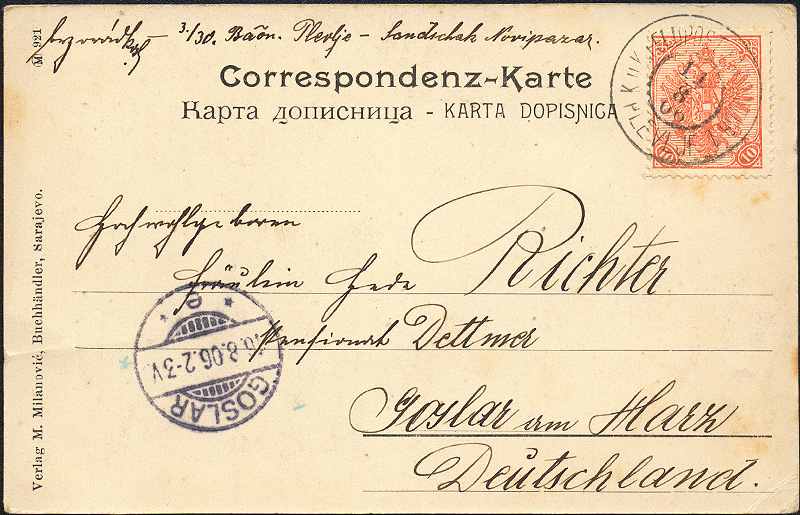 3/30. Baōn. Plevlje - Sandschak Novipazar.
M. 921
Correspondenz-Karte
Карта дописница - KARTA DOPISNICA
K.u.K.
PLEVLJE
11
8
06
10
Hochwohlgeboren
Fräulein Hede Richter
Pensionat Dettmer
Goslar am Harz
Deutschland.
GOSLAR
8.06.2-3V.
e
Verlag M. Milanović, Buchhändler, Sarajevo.